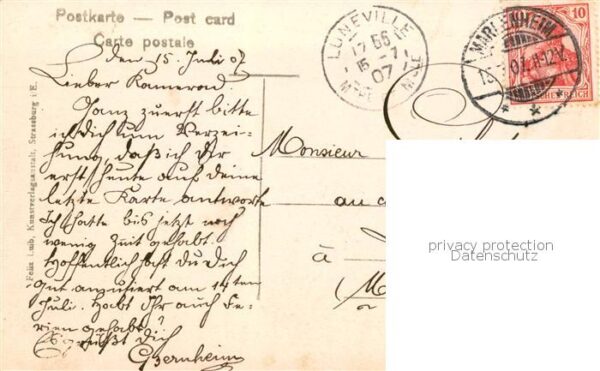 Postkarte — Post card
Carte postale
den 15. Juli 07
Lieber Kamerad.
Ganz zuerst bitte
ich Dich um Verzei-
hung, daß ich Dir
erst heute auf deine
letzte Karte antworte
Ich hatte bis jetzt noch
wenig Zeit gehabt.
Hoffentlich hast du Dich
gut amusiert am 14ten
Juli. Habt Ihr auch Fe-
rien gehabt?
Es grüßt Dich
LUNEVILLE
17 55
15 - 7
07
MARLENHEIM
10
Monsieur
au
à
(M
Felix Luib, Kunstverlagsanstalt, Strassburg i. E.
privacy protection
Datenschutz